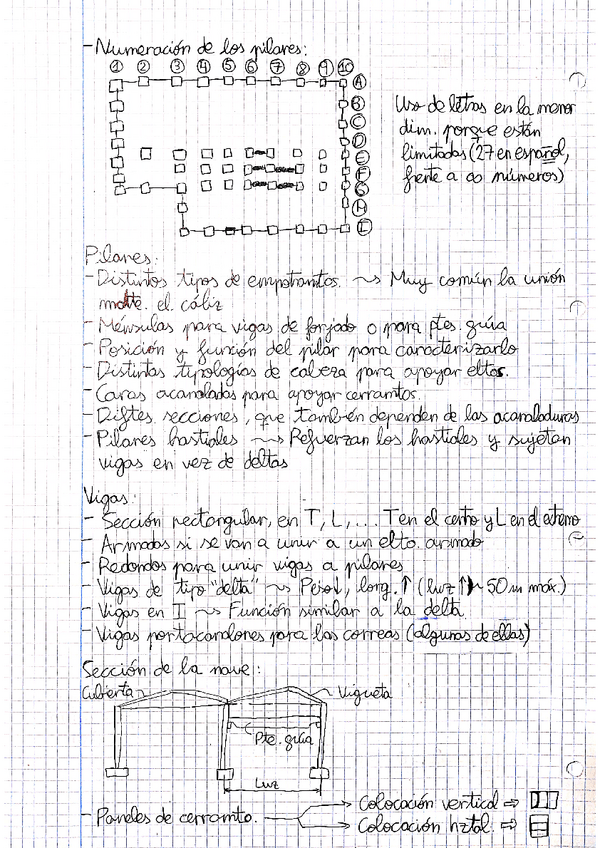 - Numeración de los pilares:
1 2 3 4 5 6 7 8 9 10
A
B
C
D
E
F
G
H
I
Uso de letras en la menor
dim. porque están
limitadas (27 en español,
frente a ∞ números)
Pilares:
- Distintos tipos de empotramtos. ~> Muy común la unión
mdte. el cáliz
- Ménsulas para vigas de forjado o para ptes. grúa
- Posición y función del pilar para caracterizarlo
- Distintas tipologías de cabeza para apoyar eltos.
- Caras acanaladas para apoyar cerramtos.
- Diftes. secciones, que también dependen de las acanaladuras
- Pilares hastiales ~> Refuerzan los hastiales y sujetan
vigas en vez de deltas
Vigas:
- Sección rectangular, en T, L, ... T en el centro y L en el extremo
- Armados si se van a unir a un elto. armado
- Redondos para unir vigas a pilares
- Vigas de tipo "delta" ~> Peso↓, long.↑ (luz↑ ~ 50 m máx.)
- Vigas en I ~> Función similar a la delta
- Vigas portacanalones para las correas (algunas de ellas)
Sección de la nave:
Cubierta
Vigueta
Pte. grúa
Luz
- Paneles de cerramto.
Colocación vertical ⇒
Colocación hztal. ⇒